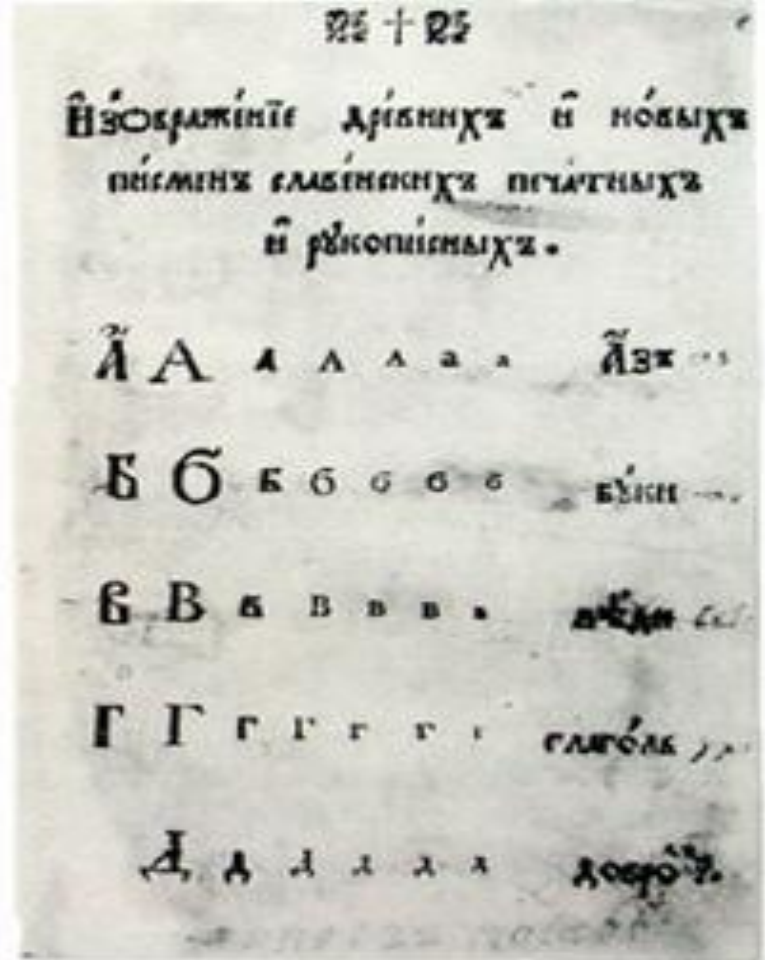 Изѡбраже́нїе дре́внихъ и҆ но́выхъ
пи́сменъ славе́нскихъ печа́тныхъ
и҆ рꙋкопи́сныхъ.
А҆́ А а А А а а А҆́зъ
Б Б б б б б б бꙋ́ки
В В в В в в в вѣ́ди
Г Г г г г г г глаго́ль
Д д д д д д добро̀